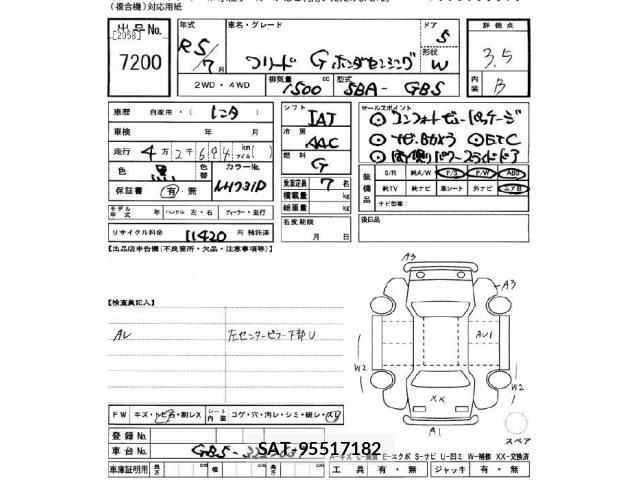 (複合機)対応用紙
出品No. [2058]
7200
年式 R5/7月
車名・グレード フリード G ホンダセンシング
ドア 5
形状 W
評価点 3.5
内装 B
2WD・4WD 排気量 1500 cc 型式 5BA-GB5
車歴 自家用・(レンタ)
車検 年 月
走行 4万2千694 km マイル
色 黒 色替 カラーNo. NH731P
保証書 有・無
モデル年式 年 ハンドル 左・右 ディーラー・並行
リサイクル料金 11420 円 預託済
シフト IAT
冷房 AAC
燃料 G
乗車定員 7 名
積載量 kg
総重量 kg
名変期限 月 日
セールスポイント
◎コンフォートビューパッケージ
◎ナビBカメラ ◎ETC
◎両側パワースライドドア
装備品 S/R 純A/W P/S P/W ABS
純TV 純ナビ 革シート 外ナビ エアB
ナビ型番:
後日品
【出品店申告欄(不良箇所・欠品・注意事項等)】
【検査員記入】
AL 左センターピラー下部U
A3
A3
AU1
W2
W2
XX
A1
スペア
FW キズ・トビ石・割レX シート内装 コゲ・穴・汚レ・シミ・破レ・スレ
登録No.
車台No. GB5-
SAT-95517182
A-キズ E-エクボ S-サビ U-凹ミ W-補修 XX-交換済
車庫証明用 長さ cm 幅 cm 高さ cm 工具 有・無 ジャッキ 有・無